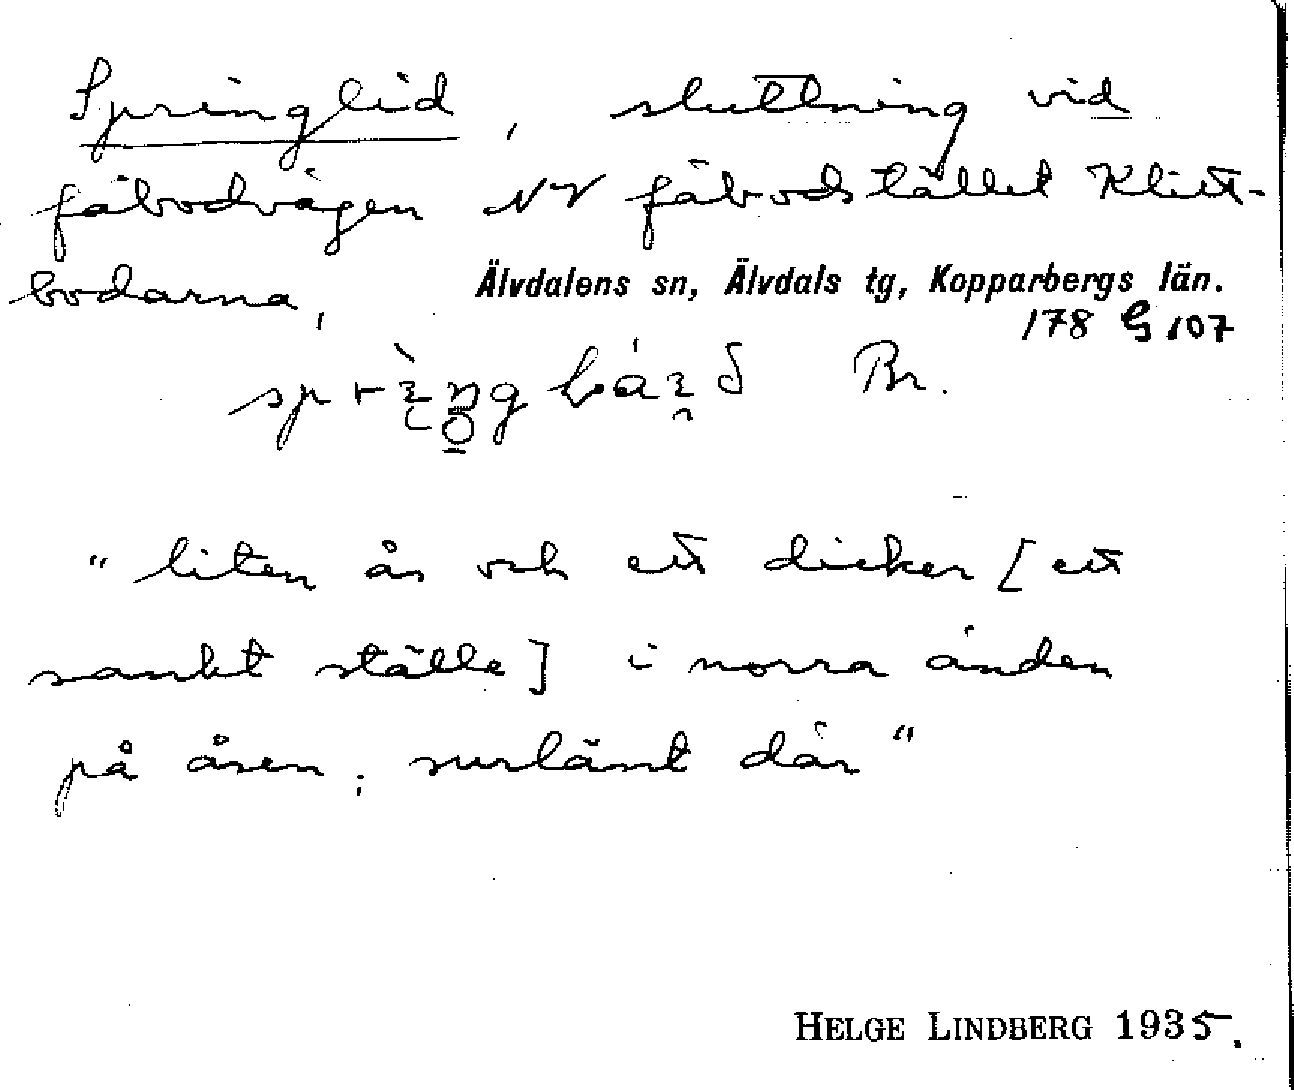 Springlid, sluttning vid
fäbodvägen NV fäbodstället Klitt-
bodarna,
Älvdalens sn, Älvdals tg, Kopparbergs län.
178 G 107
Br.
"liten ås och ett dicker [ett
sankt ställe] i norra änden
på åsen; surlänt där"
HELGE LINDBERG 1935.